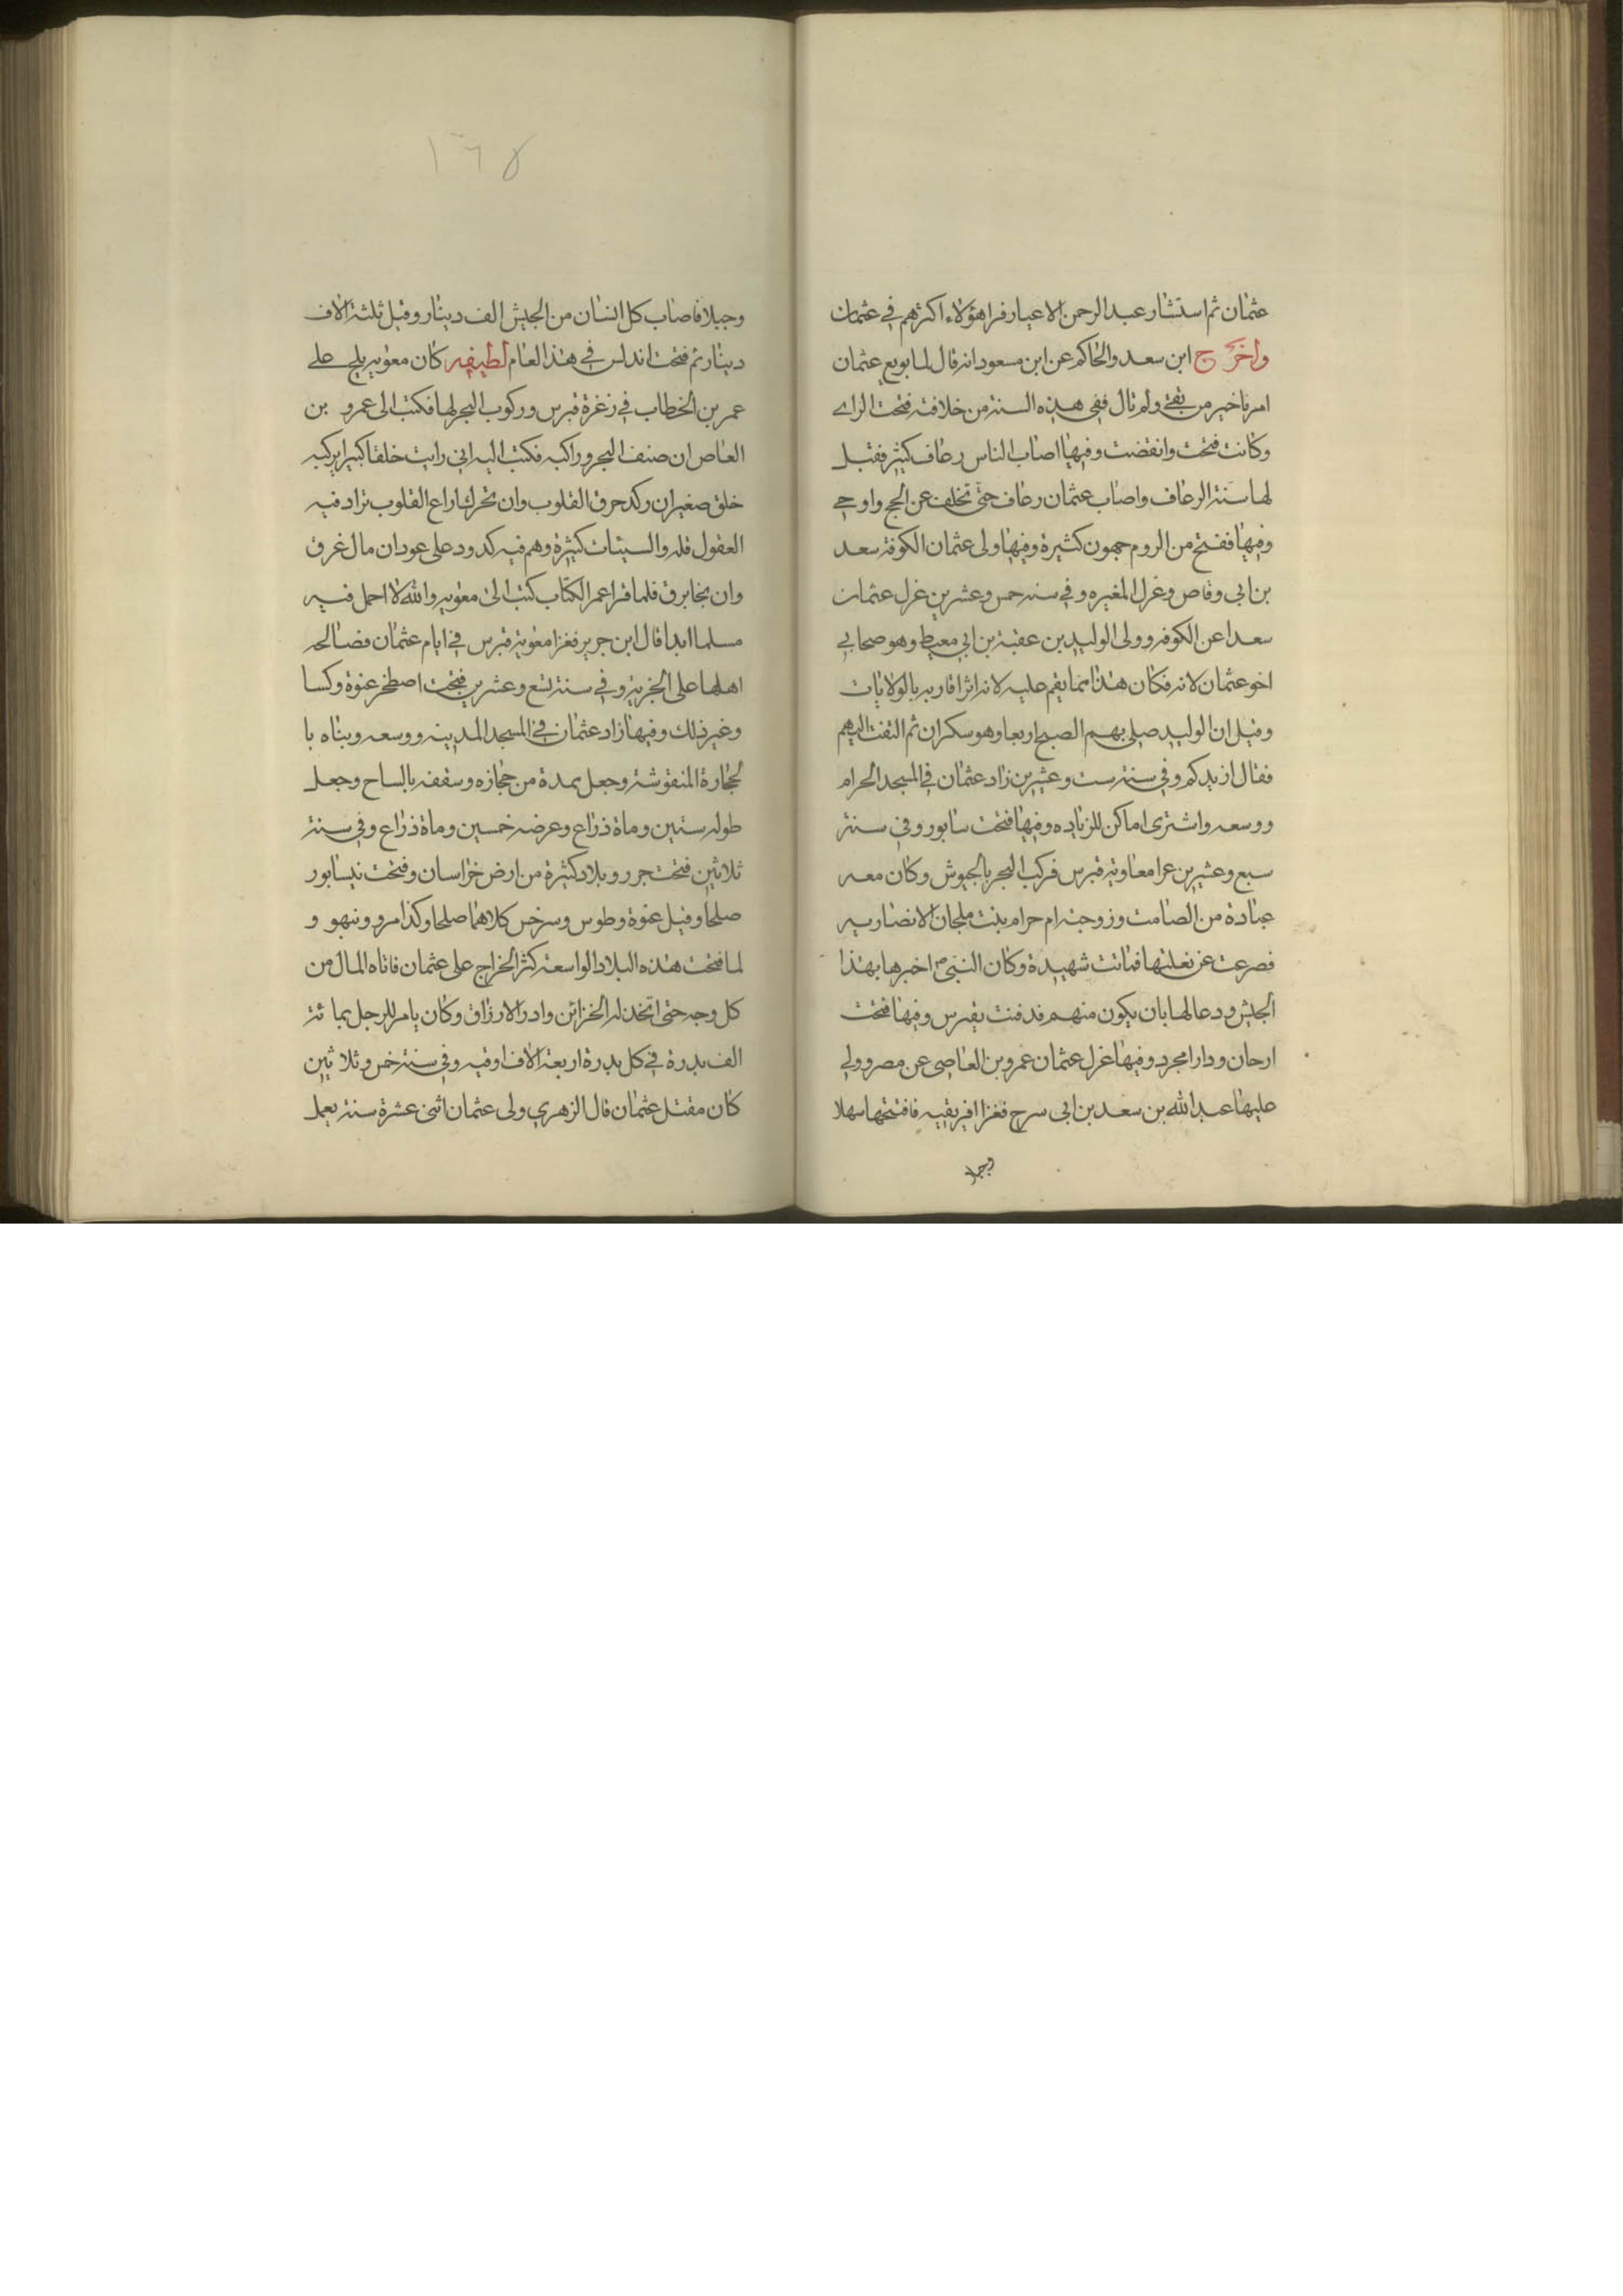 عثمان ثم استشار عبد الرحمن الاعيار فرا هؤلاء اكثرهم في عثمان
واخرج ابن سعد والحاكم عن ابن مسعود انه قال لما بويع عثمان
امرنا خير من بقي ولم نال ففي هذه السنة من خلافته فتحت الراے
وكانت فتحت وانقضت وفيها اصاب الناس رعاف كثير فقيل
لها سنة الرعاف واصاب عثمان رعاف حتى تخلف عن الحج واوحي
وفيها ففتح من الروم حمون كثيرة وفيها ولى عثمان الكوفة سعد
بن ابي وقاص وغزل المغيره وفي سنه خمس وعشرين غزل عثمان
سعدا عن الكوفه وولى الوليد بن عقبة بن ابي معيط وهو صحابي
اخو عثمان لانه فكان هذا مما يقم عليه لانه اثرا قاربه بالولايات
وقيل ان الوليد صلى بهم الصبح اربعا وهو سكران ثم التفت اليهم
فقال ازيدكم وفي سنة ست وعشرين زاد عثمان في المسجد الحرام
ووسعه واشترى اماكن للزياده وفيها فتحت سابور وفي سنة
سبع وعشرين عرا معاوية قبرس فركب البحر بالجيوش وكان معه
عبادة من الصامت وزوجته ام حرام بنت ملجان الانصاريه
فصرعت عن بغلتها فماتت شهيدة وكان النبي ص اخبرها بهذا
الجيش ودعا لها بان يكون منهم فدفنت بقبرس وفيها فتحت
ارحان ودارا مجرد وفيها غزل عثمان عمرو بن العاصى عن مصر وولي
عليها عبد الله بن سعد بن ابى سرح فغزا افريقيه فافتتحها سهلا
وجبلا
١٦٨
وجبلا فاصاب كل انسان من الجيش الف دينار وقيل ثلثة الاف
دينار ثم فتحت اندلس في هذا العام لطيفه كان معويه يلح على
عمر بن الخطاب في زغرة قبرس وركوب البحر لها فكتب الى عمرو بن
العاص ان صنف البحر وراكبه فكتب اليه انى رايت خلقا كبيرا يركبه
خلق صغير ان ركد حرق القلوب وان تحرك اراع القلوب تراد فيه
العقول قله والسيئات كثيرة وهم فيه كدود على عود ان مال غرق
وان نجا برق فلما قرا عمر الكتاب كتب الى معويه والله لا احمل فيه
مسلما ابدا قال ابن جرير فغزا معوية قبرس في ايام عثمان فصالحه
اهلها على الجزية وفي سنة تسع وعشرين فتحت اصطخر عنوة وكسا
وغير ذلك وفيها زاد عثمان في المسجد المدينه ووسعه وبناه با
لحجارة المنقوشة وجعل بمدة من حجازه وسقفه بالساح وجعل
طوله ستين وماة ذراع وعرضه خمسين وماة ذراع وفي سنة
ثلاثين فتحت جرر وبلاد كثيرة من ارض خراسان وفتحت نيسابور
صلحا وقيل عنوة وطوس وسرخس كلاهما صلحا وكذا مرو ونبهو و
لما فتحت هذه البلاد الواسعة كثر الخراج على عثمان فاتاه المال من
كل وجه حتى اتخذ له الخزائن وادر الارزاق وكان يامر للرجل بما ئة
الف بدرة في كل بدرة اربعة الاف اوقيه وفي سنة خمس وثلا ثين
كان مقتل عثمان قال الزهري ولى عثمان اثنى عشرة سنة يعمل